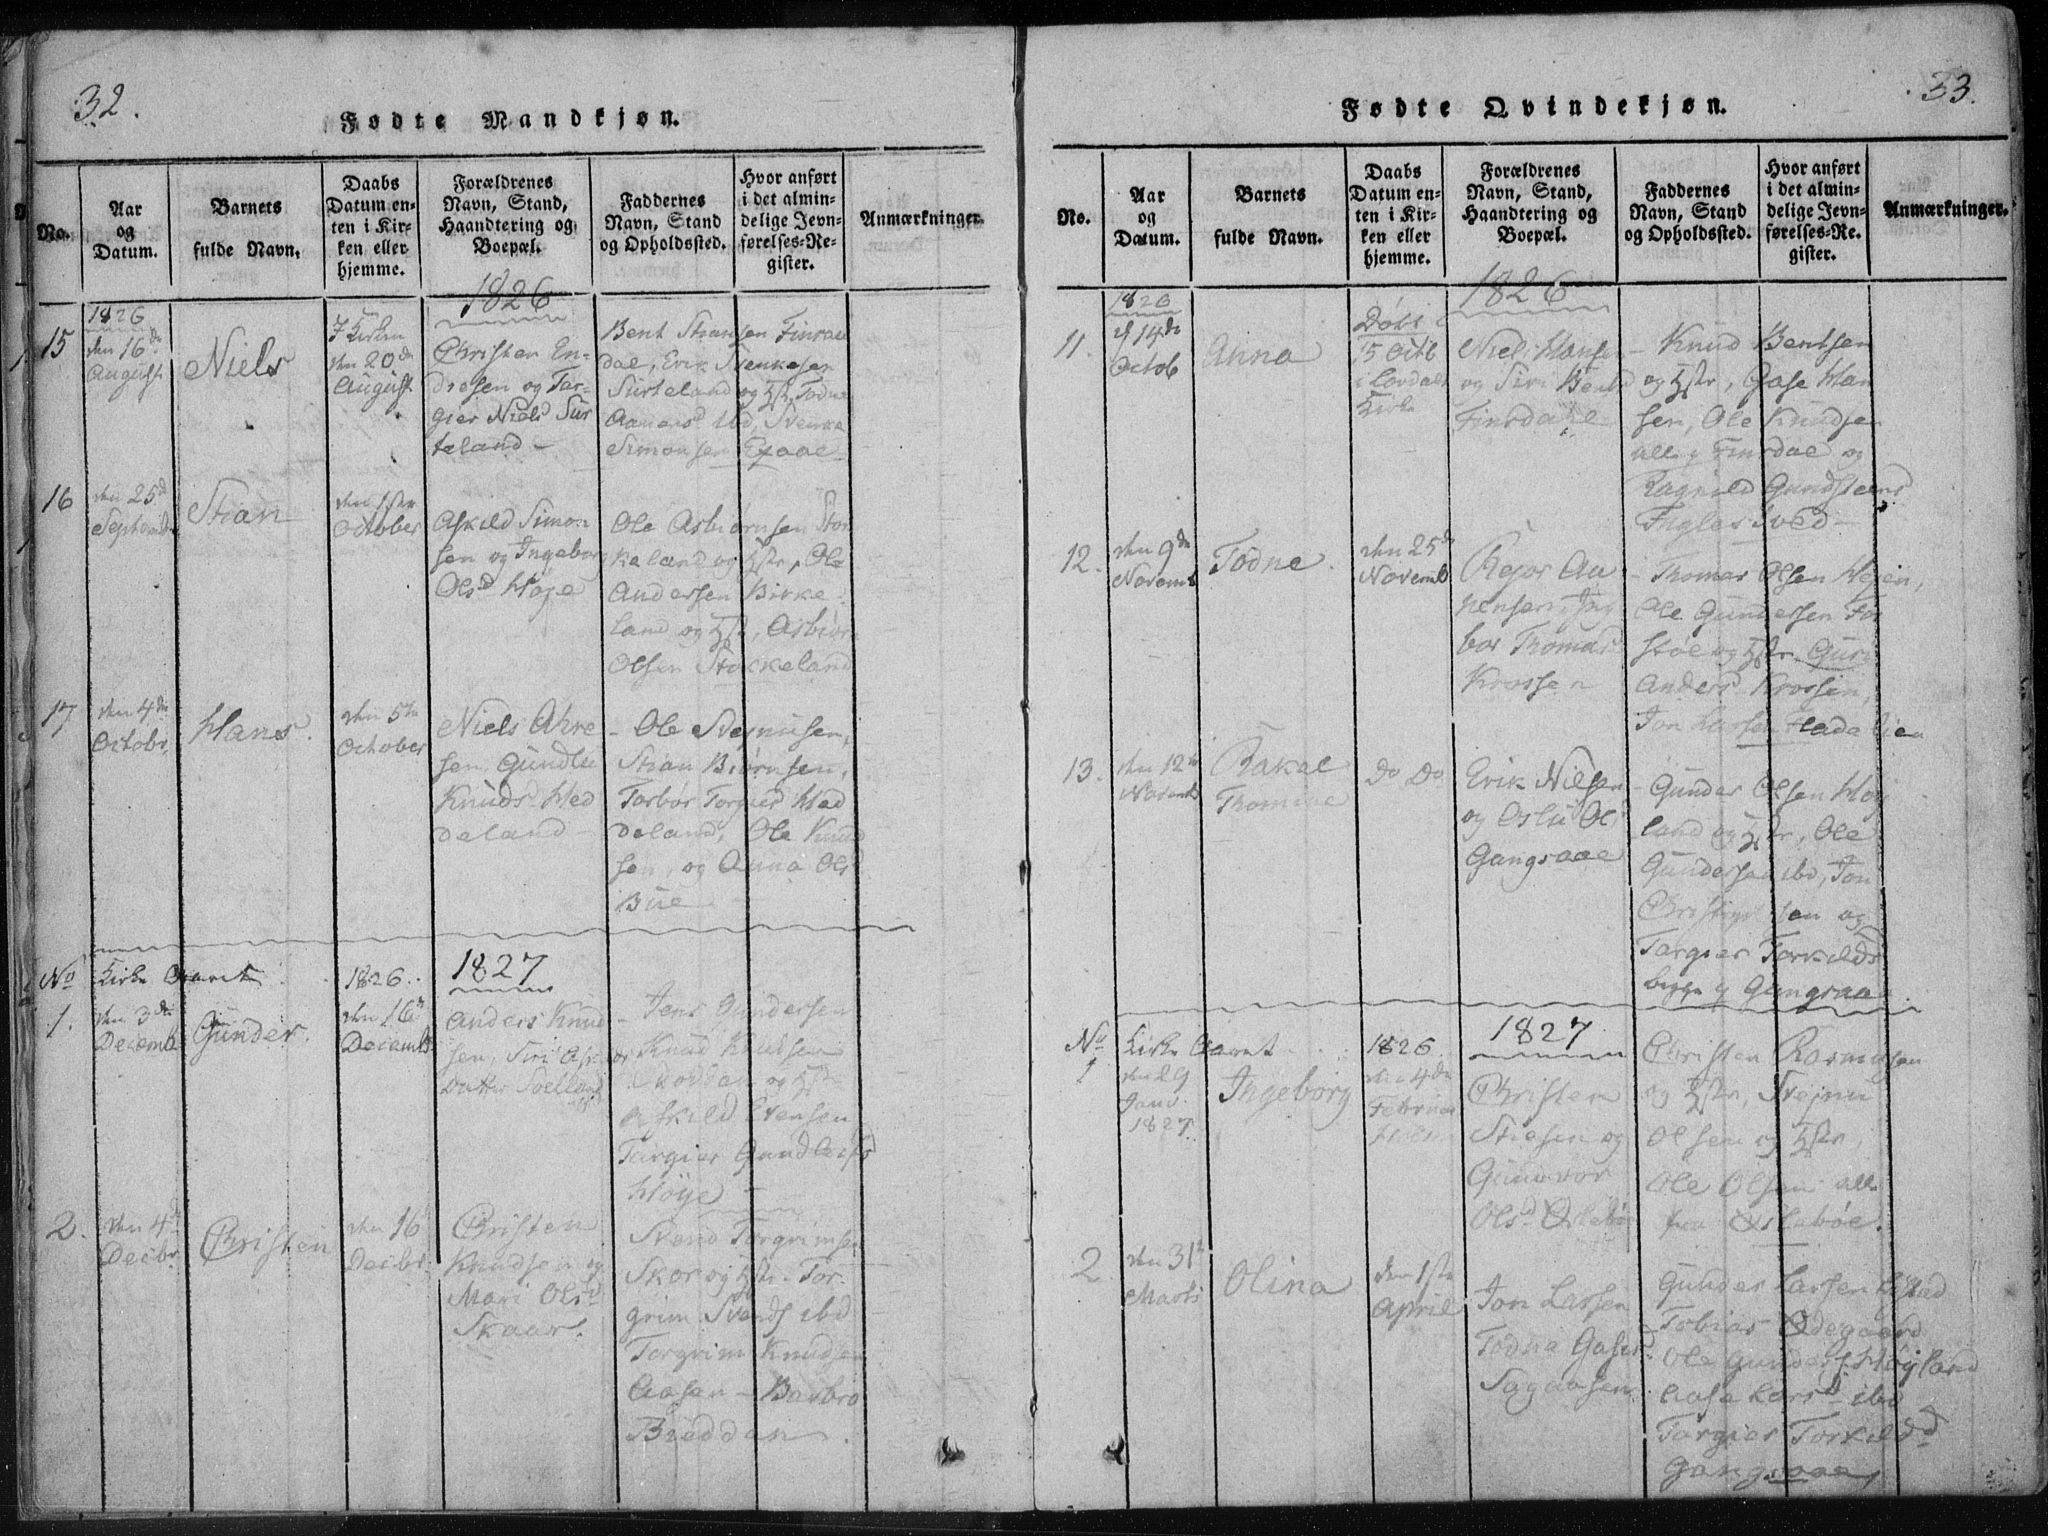 32.
Fødte Mandkjøn.
No.
Aar og Datum.
Barnets fulde Navn.
Daabs Datum enten i Kirken eller hjemme.
Forældrenes Navn, Stand, Haandtering og Boepæl.
Faddernes Navn, Stand og Opholdssted.
Hvor anført i det almindelige Jevnførelses-Register.
Anmærkninger.
1826
15
1826
den 16de
August
Niels
I Kirken
den 20de
August
Christen En-
dresen og Tar-
gier Niels Sur
teland -
Bent Stiansen Finsdal
Erik
Surteland og Hstr, Todne
ibd, Svenke
Simonsen
16
den 25de
Septemb
Stian
den 1ste
October
Askild Simon
sen og Ingeborg
Olsd Høye
Ole Asbiørnsen Stor
keland og Hstr, Ole
Andersen Birke
land og Hstr, Asbiørn
Olsen Stockeland
17
den 4de
Octobr.
Hans.
den 5te
October
Niels Ahre
sen, Gundlu
Knuds Hed
deland -
- Ole Svejnusen,
Stian Biørnsen,
Torbør Torgiers Had
deland, Ole Knud
sen, og Anna Ols
Büe
No Kirke Aaret 1826. 1827
1.
den 3de
Decemb
Gunder
den 16de
Decemb
Anders Knud
sen, Siri
Datter
- Jens Gundersen
Knud Knudsen
og Hstr
Askild Evensen
Targier Gundleifs
Høye -
2.
den 4de
Decbr
Christen
den 16
Decbr.
Christen
Knudsen og
Mari Olsd
Skaar.
Svend Torgrimsen
Skor og Hstr. Tor-
grim Svends ibd
Torgrim Knudsen
Aasen - Barbro
Breddan.
33.
Fødte Qvindekjøn.
No.
Aar og Datum.
Barnets fulde Navn.
Daabs Datum enten i Kirken eller hjemme.
Forældrenes Navn, Stand, Haandtering og Boepæl.
Faddernes Navn, Stand og Opholdssted.
Hvor anført i det almindelige Jevnførelses-Register.
Anmærkninger.
1826
11.
1826
d 14de
Octob
Anna
Døbt
15 Octb
i
Kirke
Niels Hansen
og Siri Bentsd
Finsdale
- Knud Bentsen
og Hstr, Gase Han
sen, Ole Knudsen
alle Finsdal og
Ragnild Gundsteens
12.
den 9de
Novemb
Todne
den 25de
Novemb
Rejer Au
nensen, Ing
bor Thomas
Krossen
- Thomas Olsen Hejen,
Ole Gundersen
og Hstr Guri
Anders Krossen,
Jon Larsen
13.
den 12te
Novemb
Rakal
Thomine
Do Do
Erik Nielsen
og Oslu Ols
Gangsaae
- Gunder Olsen Høy
land og Hstr, Ole
Gundersen ibd, Jon
og
Targier Torkilds
begge Gangsaae.
No Kirke Aaret 1826. 1827
1
den 29
Janv.
1827.
Ingeborg
den 4de
Februar
Christen
Stiesen og
Gunvor
Olsd Øslebø
Christen Rasmussen
og Hstr, Svejnu
Olsen og Hstr,
Ole Olsen alle
fra Øslebøe.
2
den 31te
Marts
Olina
den 1ste
April
Jon Larsen
Todna Gases
Sagaasen
Gunder Larsen
Tobias Ødegaard
Ole Gunders Høyland
Aasa Larsd ibd
Targier Torkildsd
Gangsaae